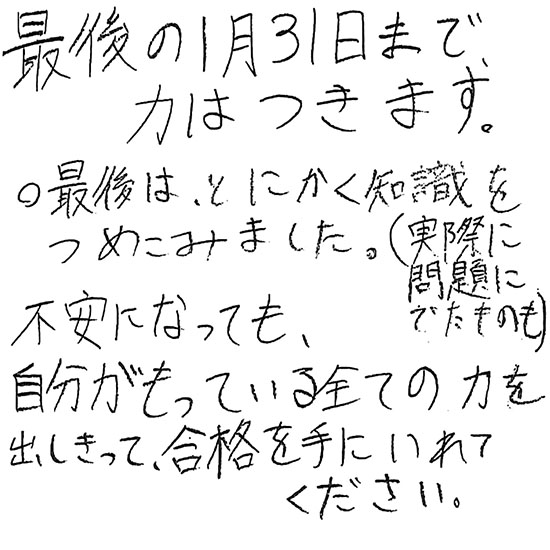 最後の1月31日まで、
力はつきます。
○最後は、とにかく知識を
つめこみました。(実際に
問題に
でたものも)
不安になっても、
自分がもっている全ての力を
出しきって、合格を手にいれて
ください。